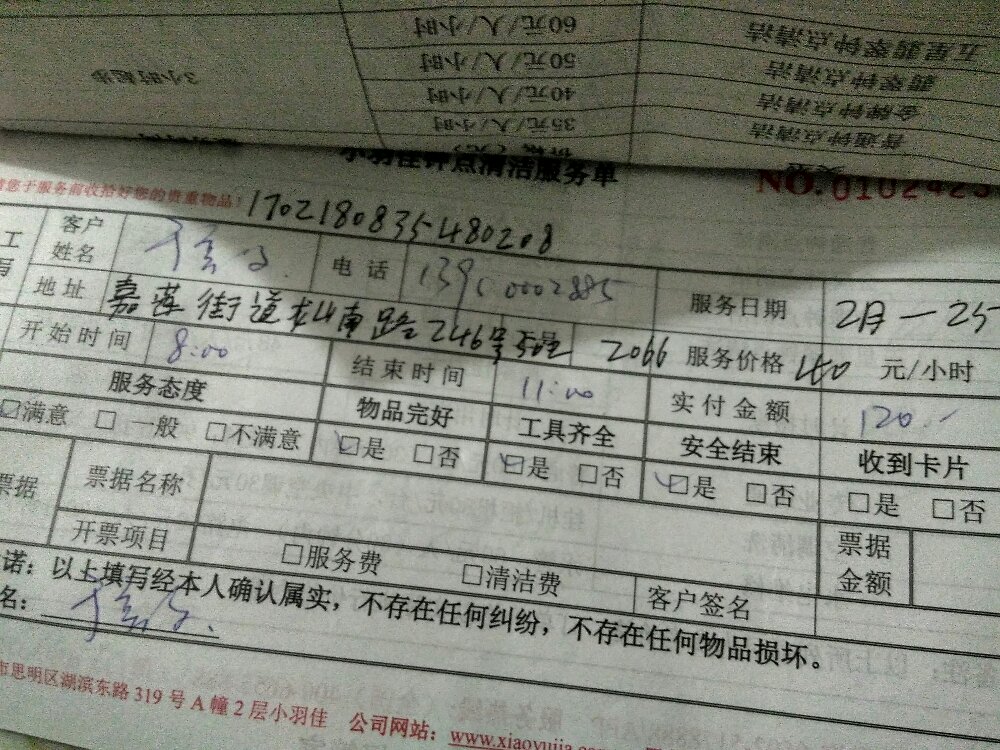 五星翡翠钟点清洁 60元/人/小时
翡翠钟点清洁 50元/人/小时
金牌钟点清洁 40元/人/小时 3小时起步
普通钟点清洁 35元/人/小时
小羽佳钟点清洁服务单
NO.0102423
请您于服务前收拾好您的贵重物品！ 1702180835480208
客户姓名 电话 服务日期 2月-25
地址 嘉莲街道龙山南路246号502 2066 服务价格 40 元/小时
开始时间 8:00 结束时间 11:00 实付金额 120.-
服务态度 物品完好 工具齐全 安全结束 收到卡片
☑满意 □一般 □不满意 ☑是 □否 ☑是 □否 ☑是 □否 □是 □否
票据 票据名称 票据金额
开票项目 □服务费 □清洁费 客户签名
诺：以上填写经本人确认属实，不存在任何纠纷，不存在任何物品损坏。
名：
市思明区湖滨东路 319 号 A 幢 2 层小羽佳 公司网站：www.xiaoyujia.com